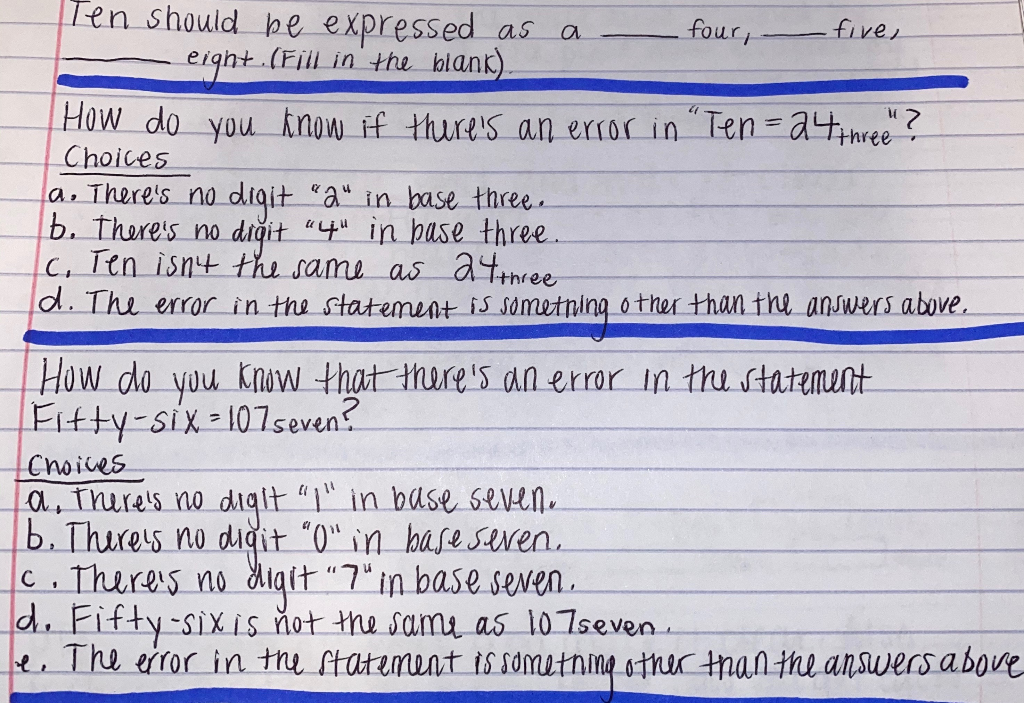 Ten should be expressed as a ____ four, ____ five,
____ eight. (Fill in the blank).
How do you know if there's an error in "Ten = 24three"?
Choices
a. There's no digit "2" in base three.
b. There's no digit "4" in base three.
c. Ten isn't the same as 24three
d. The error in the statement is something other than the answers above.
How do you know that there's an error in the statement
Fifty-six = 107seven?
Choices
a. There's no digit "1" in base seven.
b. There's no digit "0" in base seven.
c. There's no digit "7" in base seven.
d. Fifty-six is not the same as 107seven.
e. The error in the statement is something other than the answers above